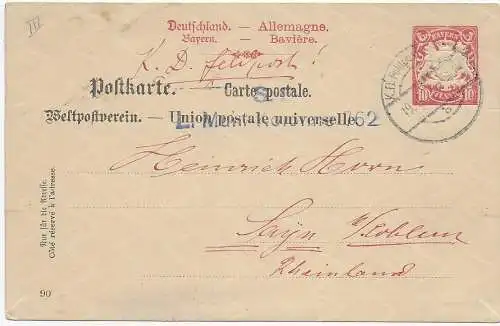 III
Deutschland. — Allemagne.
Bayern. — Bavière.
K. D. Feldpost!
BAYERN
10 PFENNIG 10
Postkarte. — Carte postale.
S. B.
Weltpostverein. — Union postale universelle.
L. Mun. Kolonne 362
Heinrich Horn
Sayn b/Koblenz
Rheinland
Nur für die Adresse.
Côté réservé à l'adresse.
90